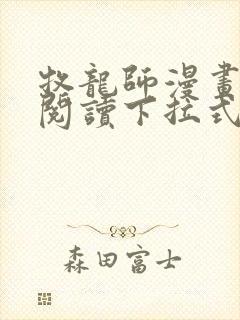 牧龍師漫畫
閱讀下拉式
森田富士